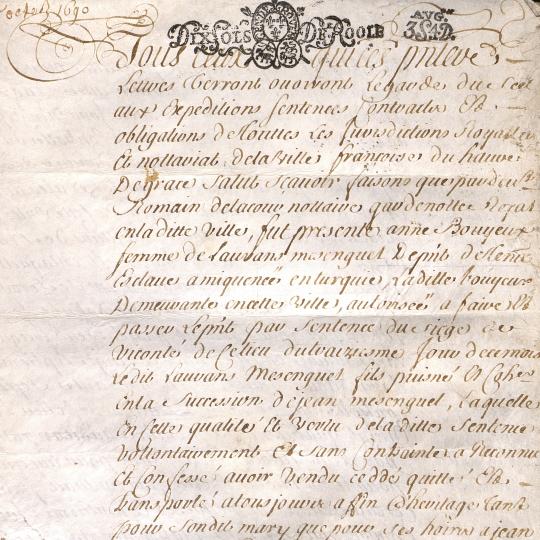 octob 1690
DIX SOLS DE ROOLE
AVG. 3S4D
Tous ceux qui ces pntes
Lettres Verront ou oiront Le garde du Scel
aux Expeditions Sentences Contractes Et
obligations de Touttes Les Jurisdictions Royalles
Et nottariat dela Ville francoise du havre
De grace Salut Scavoir faisons que pardevt
Romain delacour nottaire gardenotte Royal
en la ditte Ville, fut presente anne Bouyeux
femme de Laurans mesenguet Depnt detenu
Esclave a miquenée en turquie, Ladite bouyeux
Demeurante en cette Ville, autorisée a faire Et
passer Le pnt par Sentence du siege de
Viconté de Ce lieu du traiziesme Jour de ce mois
Ledit Laurans Mesenguet fils puisné Et Coher
en la Succession de jean mesenguet, Laquelle
En cette qualité Et Vertu de la ditte Sentence
Vollontairement Et Sans Contrainte a Reconnu
Et Confessé avoir Vendu ceddé quitté Et
transporté a tousjours affin d'heritage tant
pour Sondit mary que pour Ses hoirs a jean